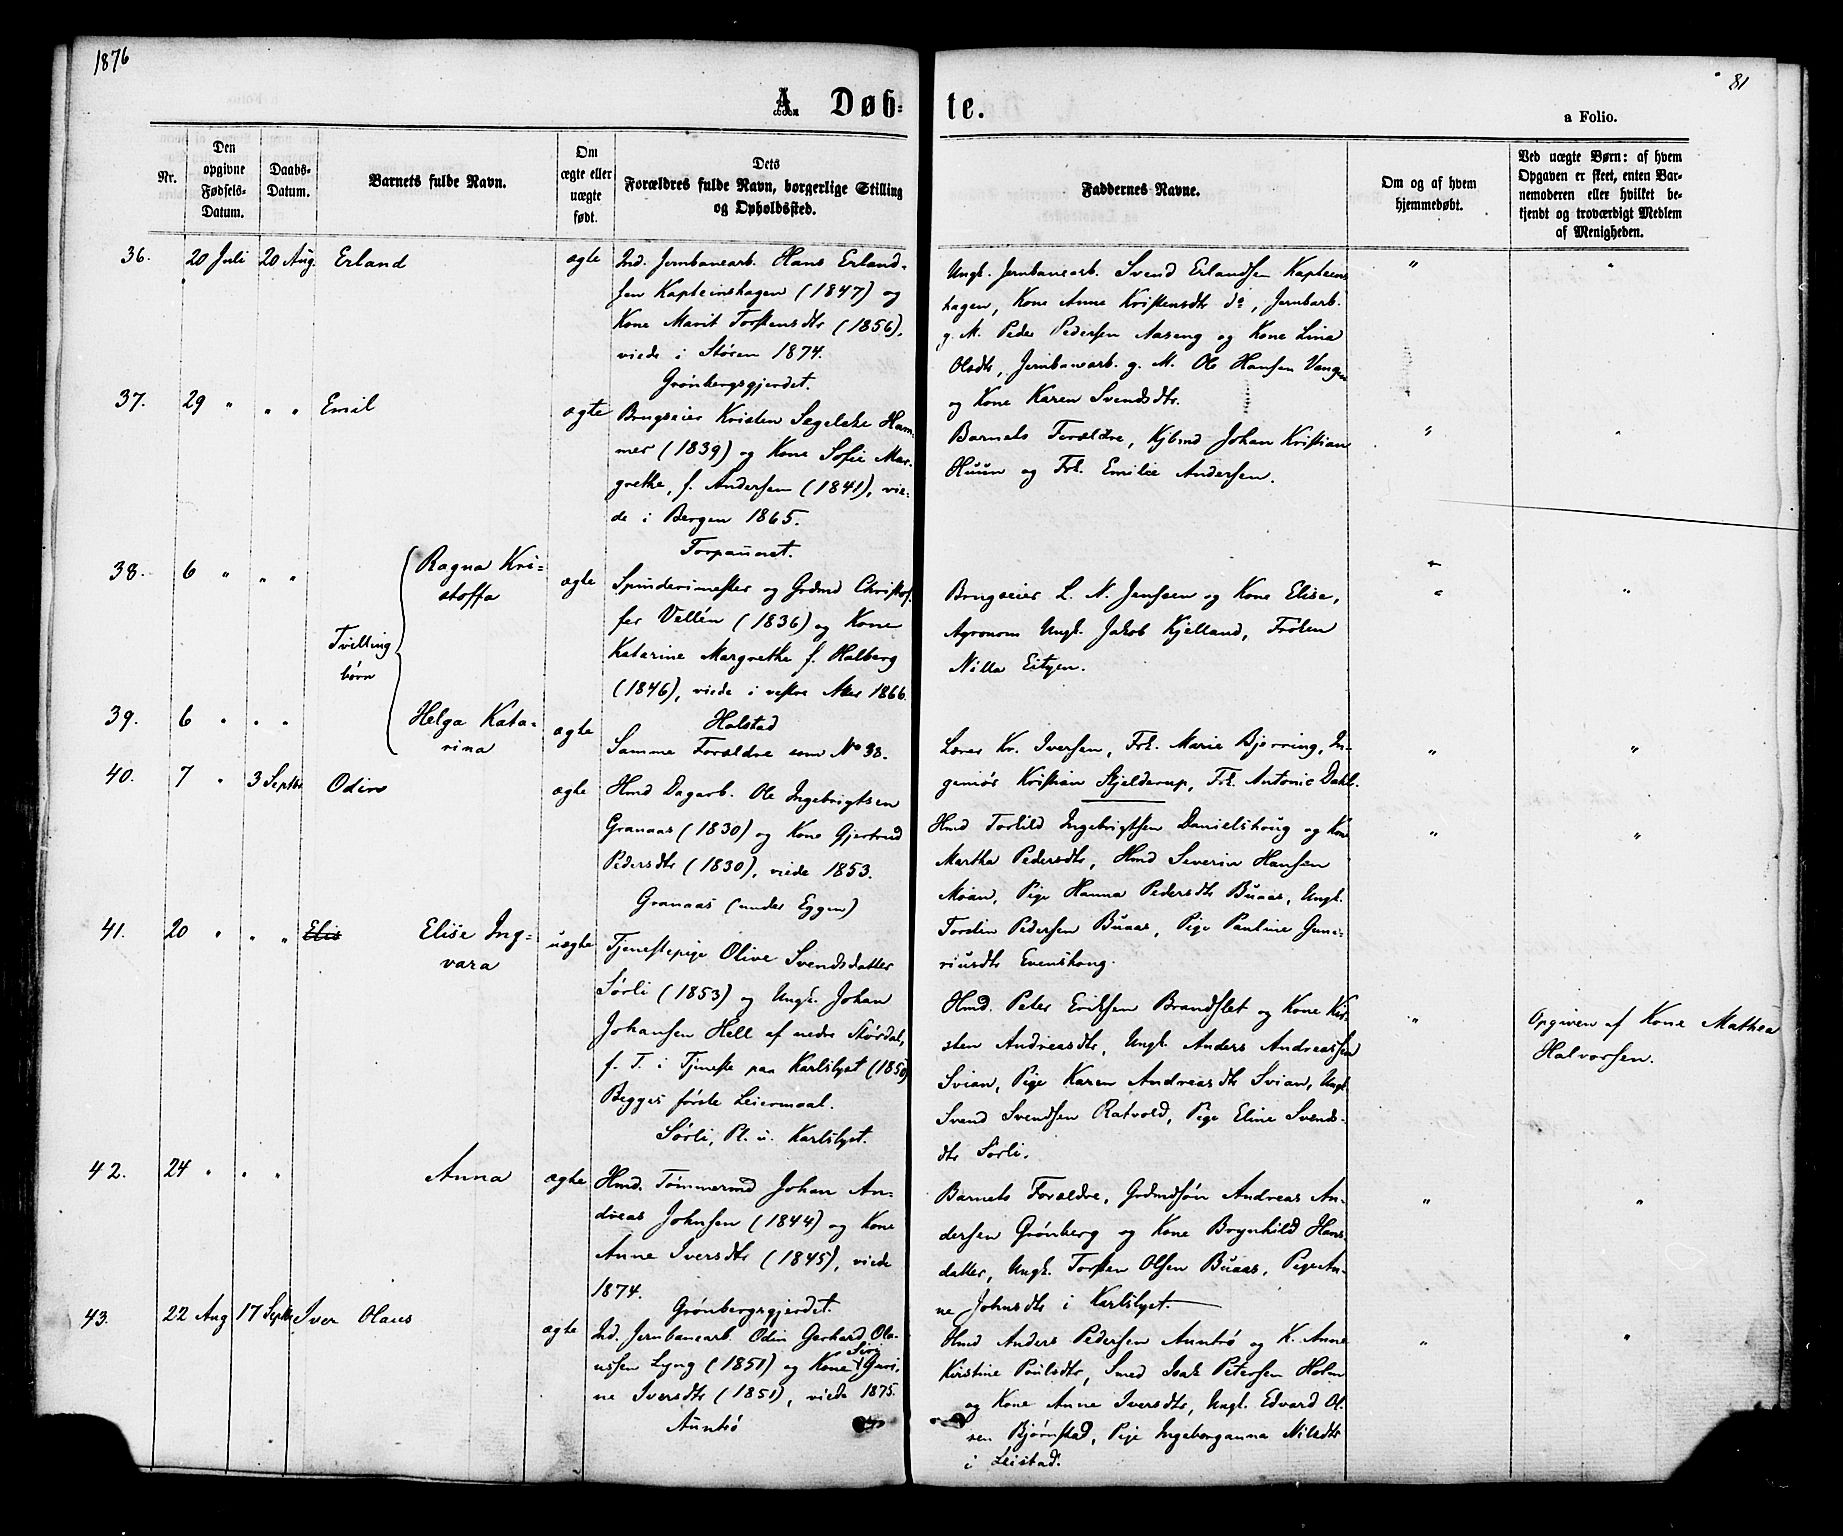 1876
81
A. Døb-te.
a Folio.
Nr.
Den opgivne Fødsels-Datum.
Daabs-Datum.
Barnets fulde Navn.
Om ægte eller uægte født.
Dets Forældres fulde Navn, borgerlige Stilling og Opholdssted.
Faddernes Navne.
Om og af hvem hjemmedøbt.
Ved uægte Børn: af hvem Opgaven er skeet, enten Bar-nemoderen eller hvilket be-kjendt og troværdigt Medlem af Menigheden.
36. 20 Juli 20 Aug. Erland ægte
Ind. Jernbanearb. Hans Erland-
sen Kapteinshagen (1847) og
Kone Marit Torstensdtr (1856),
viede i Støren 1874.
Grønbergsgjerdet.
Ungk. Jernbanearb. Svend Erlandsen Kapteins
hagen, Kone Anne Kristensdtr do, Jernbarb.
g. M. Peder Pedersen Aaseng og Kone Lina
Olsdtr, Jernbanearb. g. M. Ole Hansen Vangen
og Kone Karen Svendsdtr.
" "
37. 29 " " " Emil ægte
Brugseier Kristen Segelcke Ham-
mer (1839) og Kone Sofie Mar-
grethe, f. Andersen (1841), vie-
de i Bergen 1865.
Torpaunet.
Barnets Forældre, Kjbmd Johan Kristian
Huun og Frk. Emilie Andersen.
" "
38. 6 " " " Tvilling
børn
Ragna Kri-
stoffa
ægte
Spinderimester og Grdmd Christof-
fer Vellén (1836) og Kone
Katarine Margrethe f. Halberg
(1846), viede i vestre Aker 1866.
Halstad
Brugseier L. N. Jenssen og Kone Elise,
Agronom Ungk. Jakob Kjelland, Frøken
Nilla
" "
39. 6 " " "
Helga Kata-
rina
ægte
Samme Forældre som No 38.
Lærer Kr. Iversen, Frk. Marie Bjerring, In-
geniør Kristian Skjelderup, Frk. Antonie Dahl.
" "
40. 7 " 3 Septbr Odin ægte
Hmd Dagarb. Ole Ingebrigtsen
Granaas (1830) og Kone Gjertrud
Pedersdtr (1830), viede 1853.
Granaas (under Eggen)
Hmd Torkild Ingebrigtsen Danielshaug og Kone
Martha Pedersdtr, Hmd Severin Hansen
Moan, Pige Hanna Pedersdtr Buaas, Ungk.
Torstin Pedersen Buaas, Pige Pauline Gune-
riusdtr Evenshaug.
" "
41. 20 " " " Elis Elise Ing-
vara
uægte
Tjenestepige Olive Svendsdatter
Sørli (1853) og Ungk. Johan
Johansen Hell af nedre Størdal,
f. T. i Tjeneste paa Karlslyst (1850)
Begges første Leiermaal.
Sørli, Pl. u. Karlslyst.
Hmd. Peter Eriksen Brandslet og Kone Kir-
sten Andreasdtr, Ungk. Anders Andreassen
Svian, Pige Karen Andreasdtr Svian, Ungk.
Svend Svendsen Ratvold, Pige Eline Svends-
dtr Sørli.
"
Opgiven af Kone Mathea
Halvorsen.
42. 24 " " " Anna ægte
Hmd. Tømmermd Johan An-
dreas Johnsen (1844) og Kone
Anne Iversdtr (1845), viede
1874.
Grønbergsgjerdet.
Barnets Forældre, Grdmdsøn Andreas An-
dersen Grønberg og Kone Brynhild Hans
datter, Ungk. Torsten Olsen Buaas, Pige An-
ne Johnsdtr i Karlslyst.
" "
43. 22 Aug 17 Septbr. Iver Olaus ægte
Ind. Jernbanearb. Odin Gerhard Ola-
ussen Lyng (1851) og Kone Siri Guri-
ne Iversdtr (1851), viede 1875.
Auntrø
Hmd Anders Pedersen Auntrø og K. Anne
Kirstine Poulsdtr, Smed Isak Petersen Holm
og Kone Anne Iversdtr, Ungk. Edvard Ol-
sen Bjørnstad, Pige Ingeborganna Nilsdtr
i Leistad.
" "